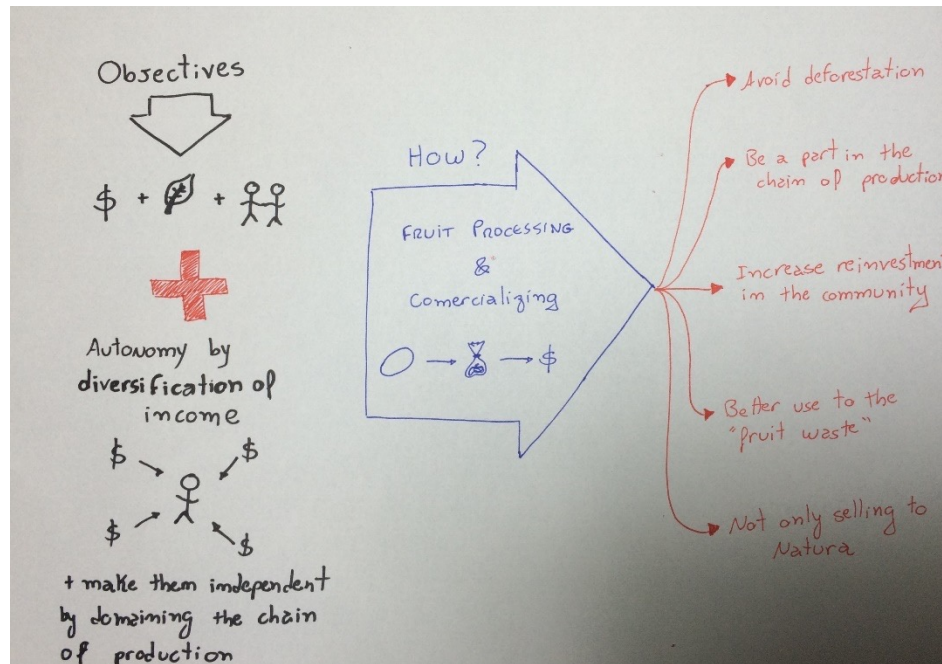 Objectives
$ + +
Autonomy by
diversification of
income
$ $
$ $
+ make them imdependent
by domaining the chain
of production
HOW?
FRUIT PROCESSING
&
Comercializing
$
Avoid deforestation
Be a part in the
chain of production
Increase reinvestment
in the community
Better use to the
"fruit waste"
Not only selling to
Natura